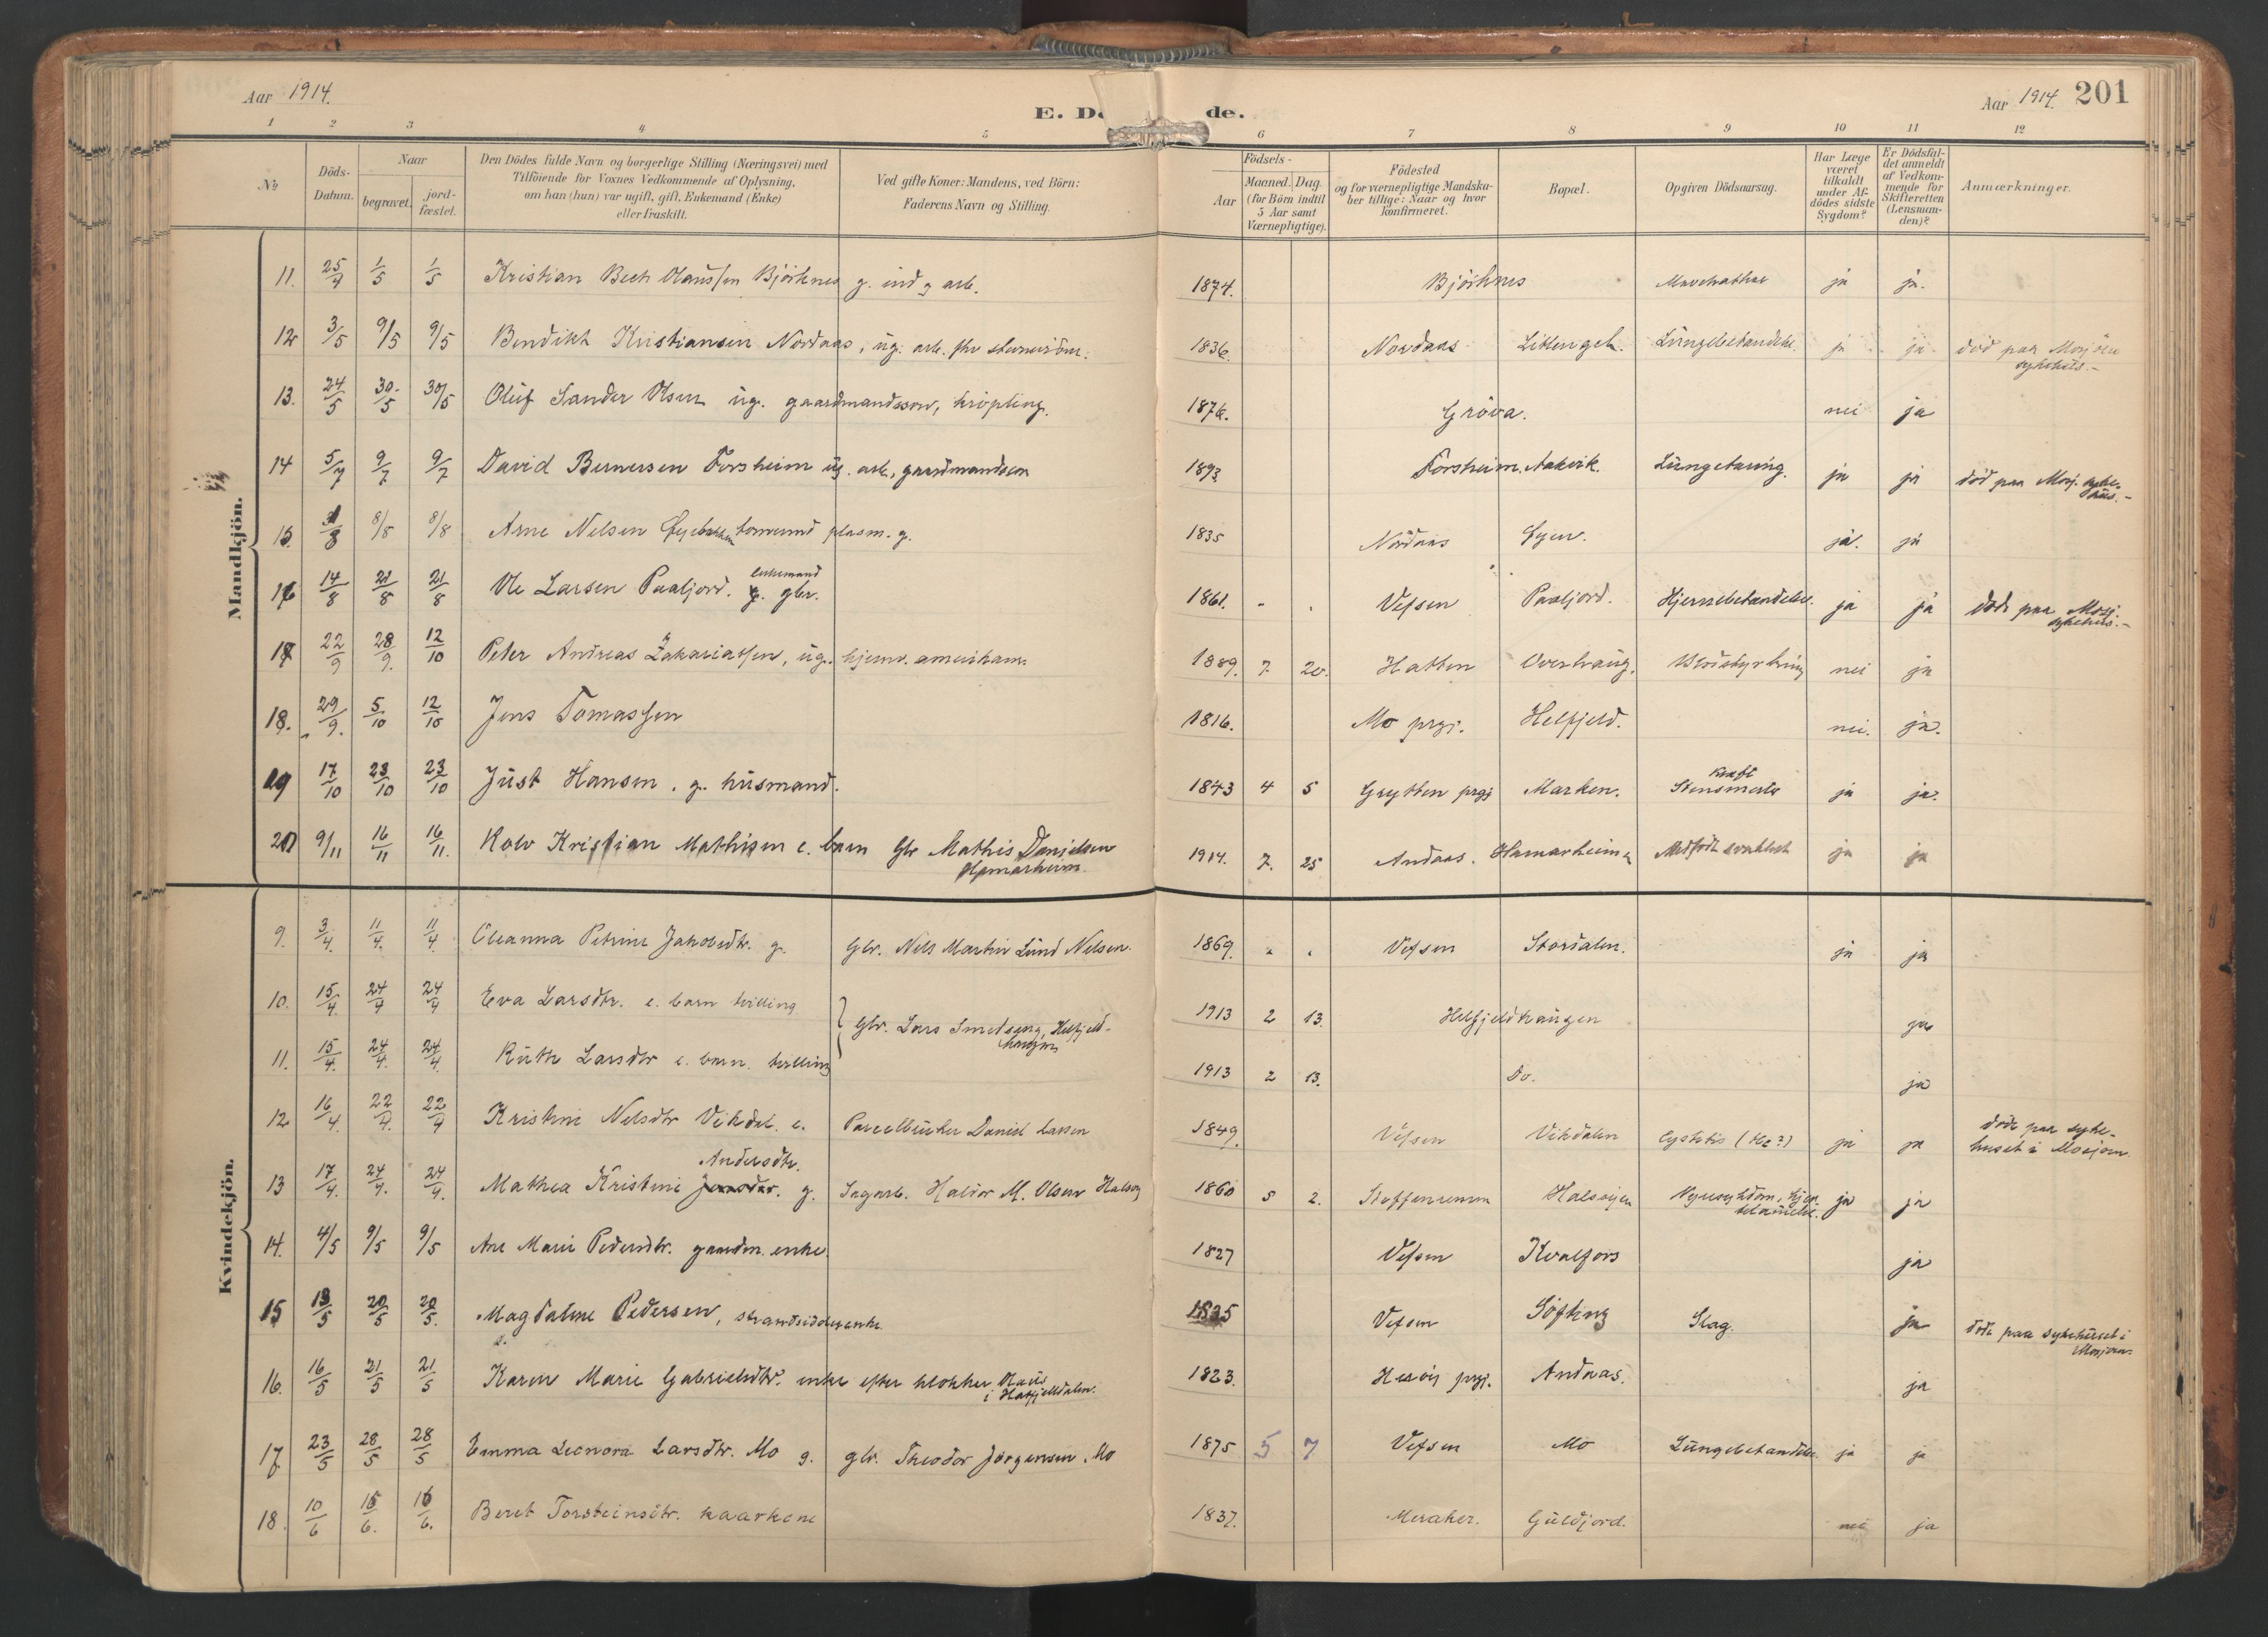 Aar 1914.
E. Dö de.
Aar 1914. 201
1 2 3 4 5 6 7 8 9 10 11 12
No
Döds-Datum.
Naar
begravet.
jord-fæstet.
Den Dödes fulde Navn og borgerlige Stilling (Næringsvei) med
Tilföiende for Voxnes Vedkommende af Oplysning,
om han (hun) var ugift, gift, Enkemand (Enke)
eller fraskilt.
Ved gifte Koner: Mandens, ved Börn:
Faderens Navn og Stilling.
Födsels-
Aar
Maaned. Dag
(for Börn indtil
5 Aar samt
Værnepligtige).
Födested
og for værnepligtige Mandska-
ber tillige: Naar og hvor
konfirmeret.
Bopæl.
Opgiven Dödsaarsag.
Har Læge
været
tilkaldt
under Af-
dödes sidste
Sygdom?
Er Dödsfal-
det anmeldt
af Vedkom-
mende for
Skifteretten
(Lensman-
den)?
Anmærkninger.
Mandkjön.
11. 25/4 1/5 1/5 Kristian Bech Olaussen Björknes g. ind g arb. 1874. Björknes ja ja.
12 3/5 9/5 9/5 Bendikt Kristiansen Nordaas, ug. arb. 1836. Nordaas Lungebetændelse. ja ja död paa Mosjöen
sykehus.-
13. 24/5 30/5 30/5 Oluf Sander Olsen ug. gaardmandssön, kröpling. 1876. Gröva. nei ja
14 5/7 9/7 9/7 David Bernersen Forsheim ug. arb., gaardmandssön 1893 Forsheim. Aakvik. Lungetæring. ja ja död paa Mosj. syke-
hus.-
15. 8/8 8/8 Arne Nilsen plasm. g. 1835 Nordaas ja. ja
16 14/8 21/8 21/8 Ole Larsen Paaljord. enkemand g. gbr. 1861. Vefsen Paaljord. Hjernebetændelse. ja ja döde paa Mosj.
sykehus.-
17 22/9 28/9. 12/10 Peter Andreas Zakariassen, ug. hjemv. amerikan. 1889. 7. 20. Hatten nei ja
18. 29/9. 5/10 12/10 Jens Tomassen 1816. Mo prgj. Helfjeld. nei. ja.
19 17/10 23/10 23/10 Just Hansen. g. husmand. 1843 4 5 Grytten prgj Marken. ja ja.
20 9/11 16/11 16/11. Rolv Kristian Mathisen e. barn Gbr Mathis Danielsen
Hamarheim. 1914. 7. 25 Andaas. Hamarheim Medfödt svakhet ja ja
Kvindekjön.
9. 3/4. 11/4. 11/4 Oleanna Petrine Jakobsdtr. g. Gbr. Nils Martin Lund Nilsen. 1869. Vefsen Stordalen. ja ja
10. 15/4. 24/4 24/4 Eva Larsdtr. e. barn tvilling 1913 2 13. Helfjeldhaugen ja
Gbr. Lars Smedseng, Helfjeld-
haugen
11. 15/4. 24/4. 24/4. Ruth Larsdtr e. barn. tvilling 1913 2 13. Do. ja
12 16/4. 22/4. 22/4 Kristine Nilsdtr Vikdal. e. Parcelbruker Daniel Larsen 1849. Vefsen Vikdalen Cystitis ja ja döde paa syke-
huset i Mosjöen.
Andersdtr.
13 17/4. 24/4. 24/4. Mathea Kristine Jensdtr. g. Sagarb. Haldor M. Olsen Halsöy 1860 5 2. Steffenremen Halsöyen Nyresykdom, ja ja
14. 4/5 9/5 9/5 Ane Marie Pedersdtr. gaardm. enke 1827 Vefsen Kvalfors ja
15 13/5 20/5 20/5. Magdalene Pedersen, strandsidderenke 1835 Vefsen Söfting Slag. ja döde paa sykehuset i
Mosjöen.
16. 16/5 21/5 21/5 Karen Marie Gabrielsdtr. enke efter klokker Olaus
i Hatfjelldalen. 1823. Heröy prgj. Andaas. ja
17 23/5 28/5 28/5 Emma Leonora Larsdtr. Mo g. gbr. Theodor Jörgensen, Mo 1875 5 7 Vefsen Mo Lungebetændelse. ja ja
18. 10/6 16/6. 16/6. Beret Torsteinsdtr. kaarkone 1837. Meraker. Guldjord. nei ja